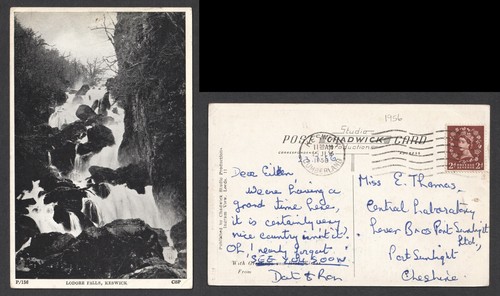 P/128
LODORE FALLS, KESWICK.
CSP
1956
POST CARD
Studio
CHADWICK
Production
11 AM
1956
2D
Published by Chadwick Studio Productions,
Leeds.
Dear Eileen,
Weare having a
grand time here,
it is certainly very
nice country isn't it.
Oh! nearly forgot
"SEE YOU SOON"
With
From
Dat & Ron
Miss E. Thomas,
Central Laboratory
Lever Bros Port Sunlight
Ltd.,
Port Sunlight
Cheshire